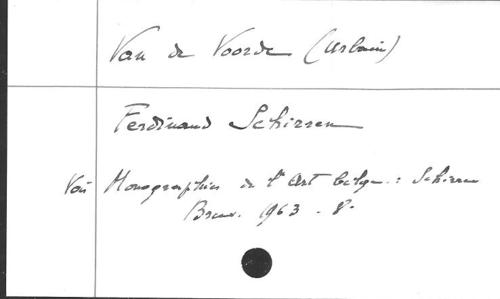 Van de Voorde (Urbain)
Ferdinand Schirren
Voir Monographies de l'Art belge : Schirren
Brux. 1963 - 8°